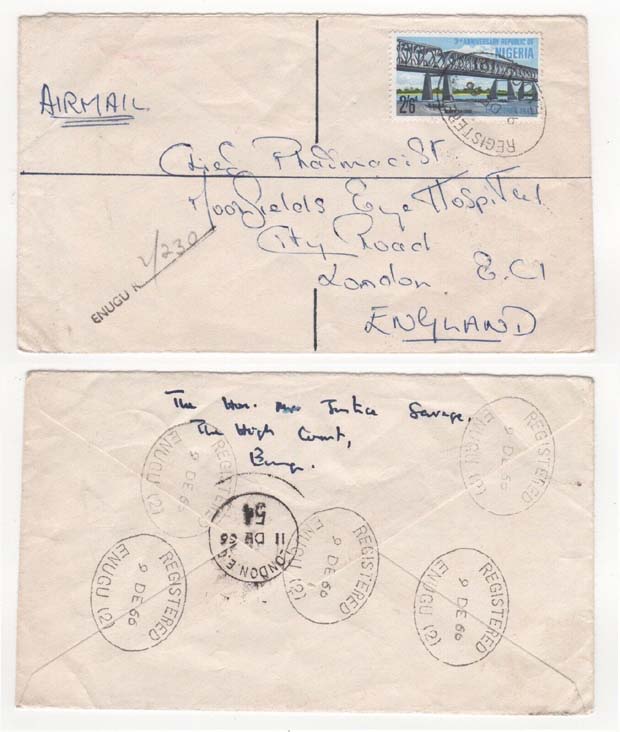 3RD ANNIVERSARY REPUBLIC OF
NIGERIA
2/6d
REGISTERED
AIRMAIL
Chief Pharmacist
Moorfields Eye Hospital
City Road
London E.C1
ENGLAND
ENUGU
2/230
The Hon. Mr Justice Savage,
The High Court,
Enugu.
REGISTERED
9 DE 66
ENUGU (2)
REGISTERED
9 DE 66
ENUGU (2)
54
11 DE 66
LONDON E.C.
REGISTERED
9 DE 66
ENUGU (2)
REGISTERED
9 DE 66
ENUGU (2)
REGISTERED
9 DE 66
ENUGU (2)